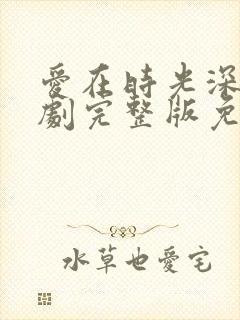 愛在時光深
劇完整版免
水草也愛宅